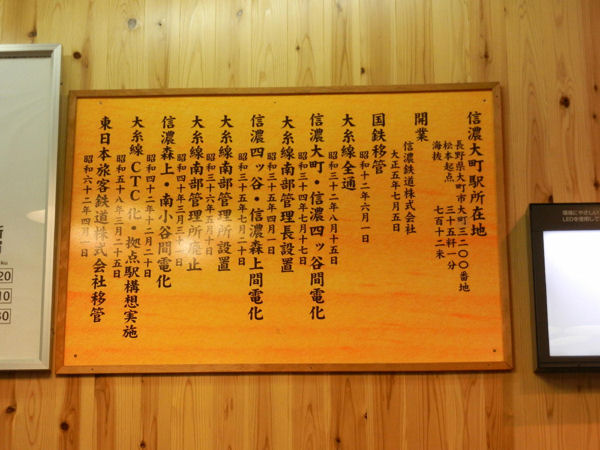 信濃大町駅所在地
長野県大町市大町三二〇〇番地
松本起点　三十五粁一分
海抜　七百十二米
開業
信濃鉄道株式会社
大正五年七月五日
国鉄移管
昭和十二年六月一日
大糸線全通
昭和三十二年八月十五日
信濃大町・信濃四ッ谷間電化
昭和三十四年七月十七日
大糸線南部管理長設置
昭和三十五年四月一日
信濃四ッ谷・信濃森上間電化
昭和三十五年七月二十日
大糸線南部管理所設置
大糸線南部管理所廃止
信濃森上・南小谷間電化
昭和四十二年十二月二十日
大糸線CTC化・拠点駅構想実施
昭和五十八年三月二十五日
東日本旅客鉄道株式会社移管
昭和六十二年四月一日
20
10
30
環境にやさしい
LEDを使用して